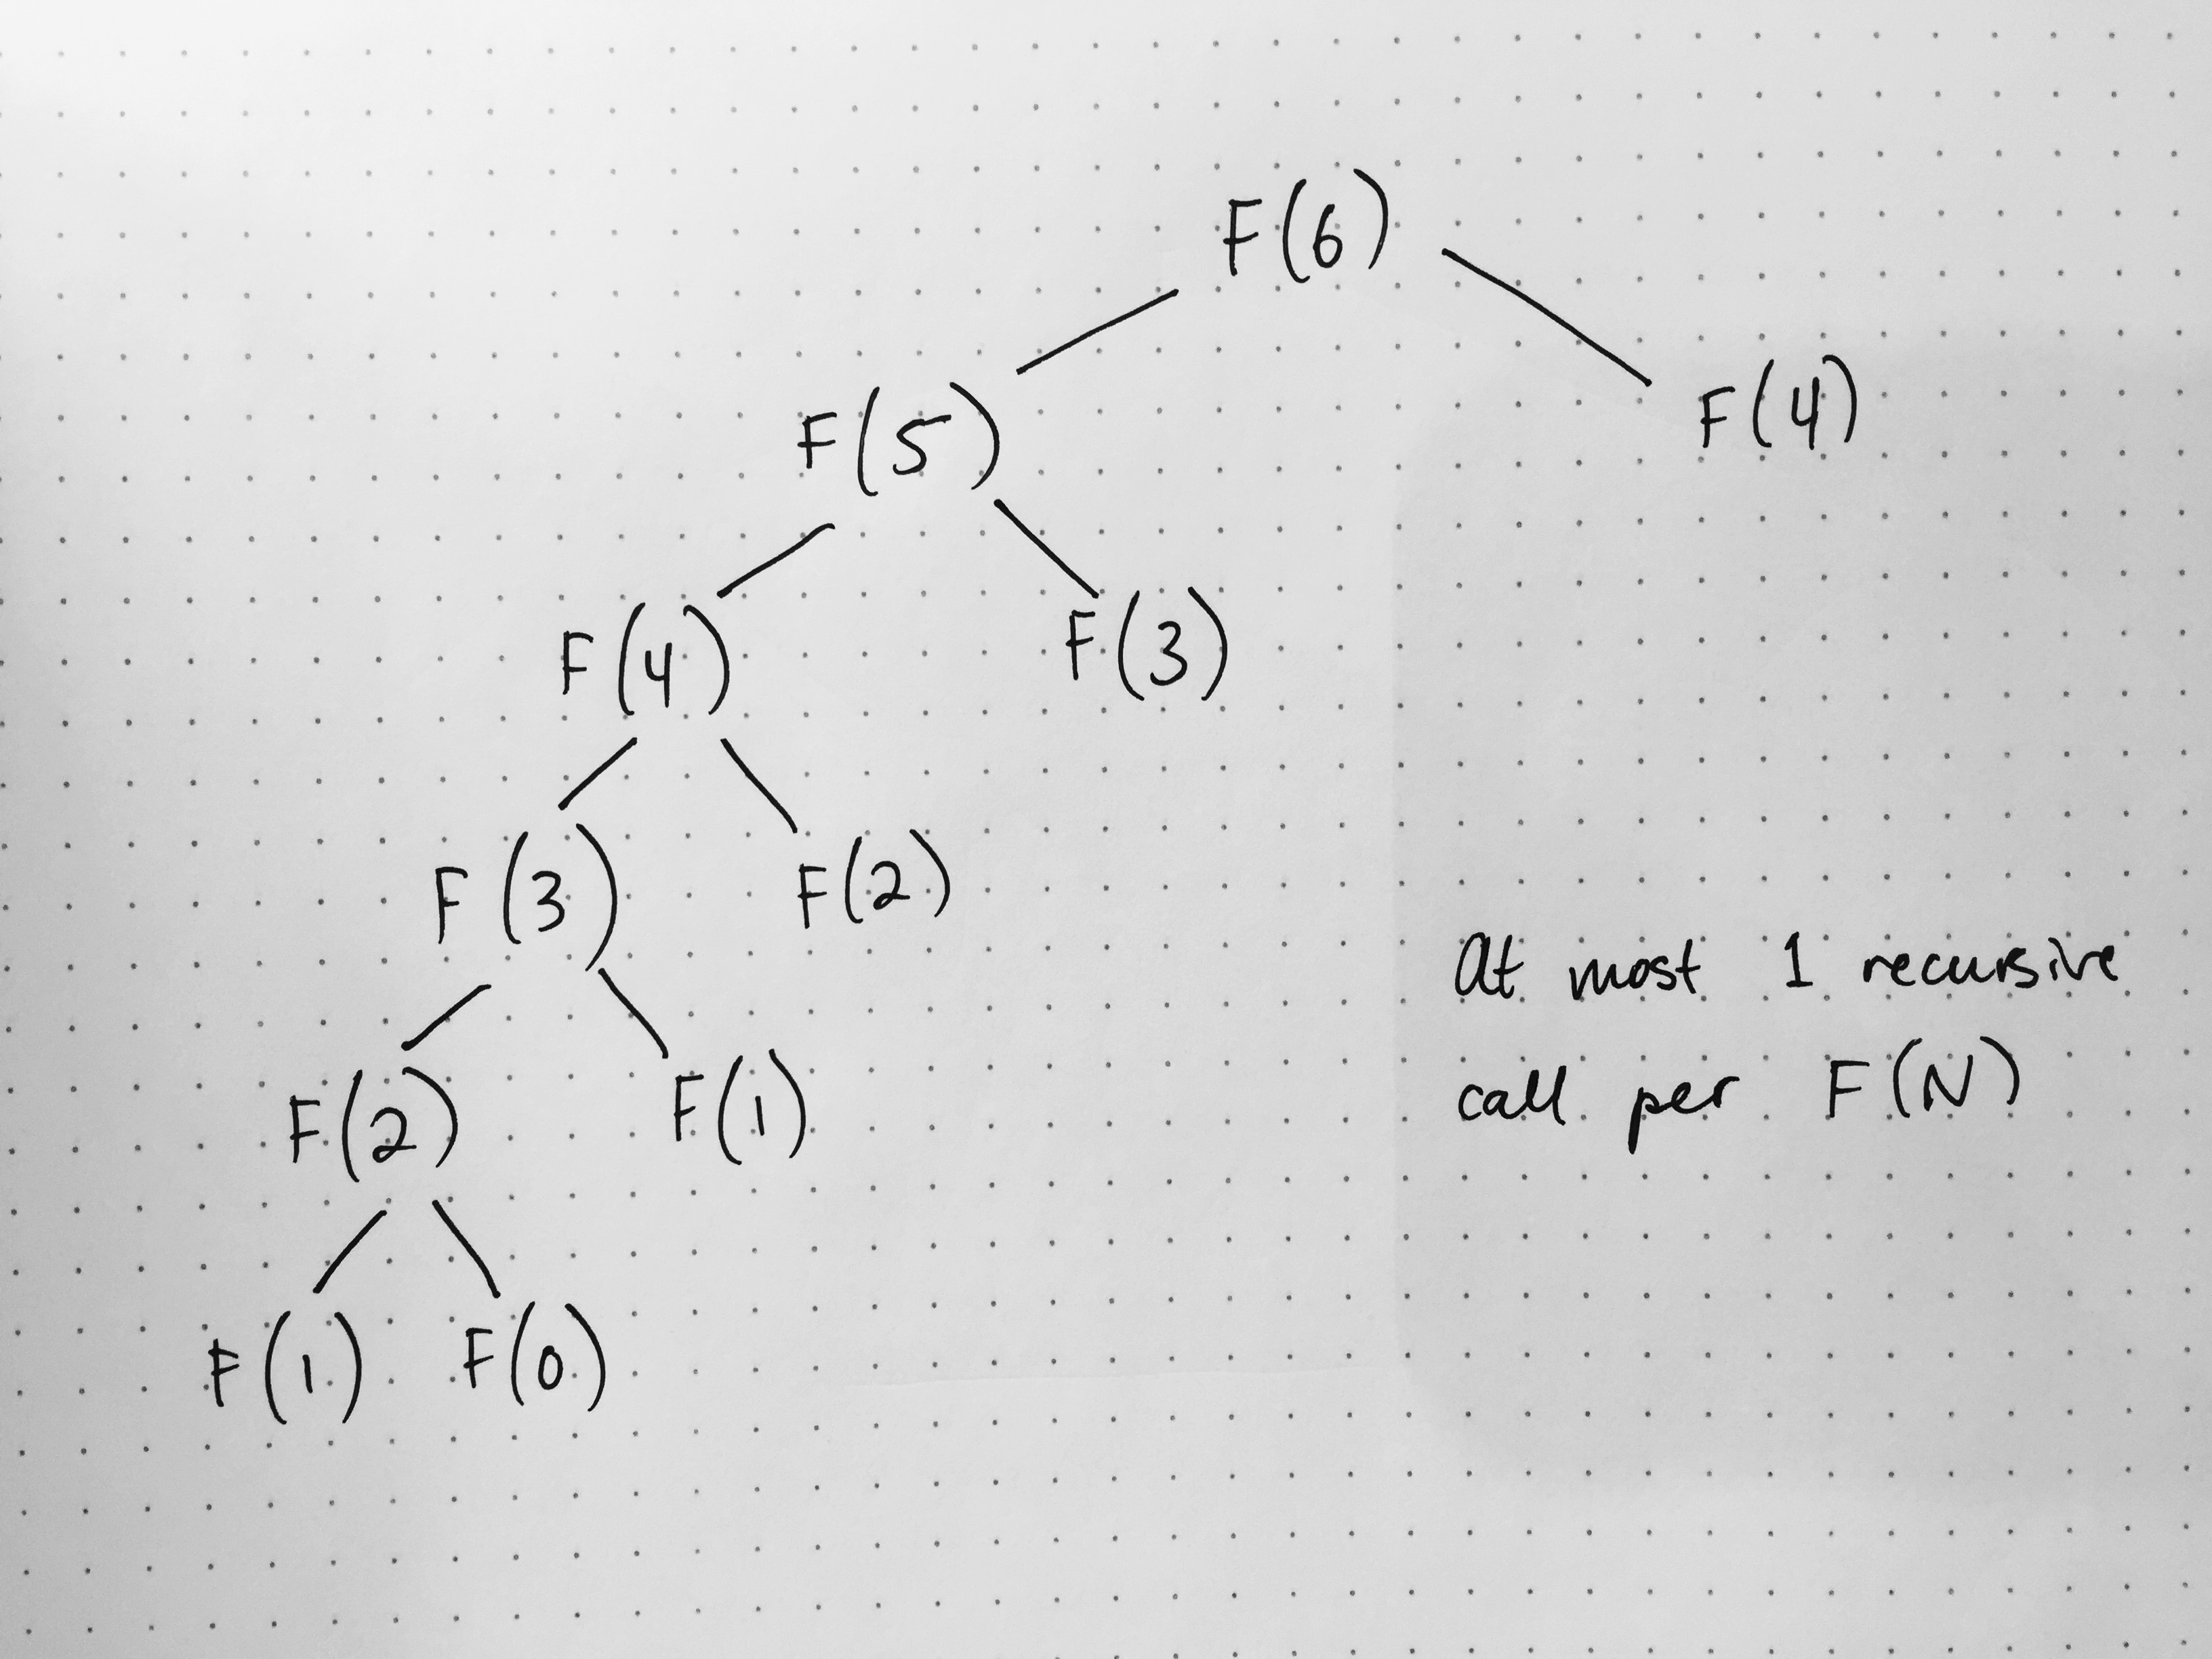 F(6)
F(5)
F(4)
F(4)
F(3)
F(3)
F(2)
F(2)
F(1)
F(1)
F(0)
At most 1 recursive
call per F(N)